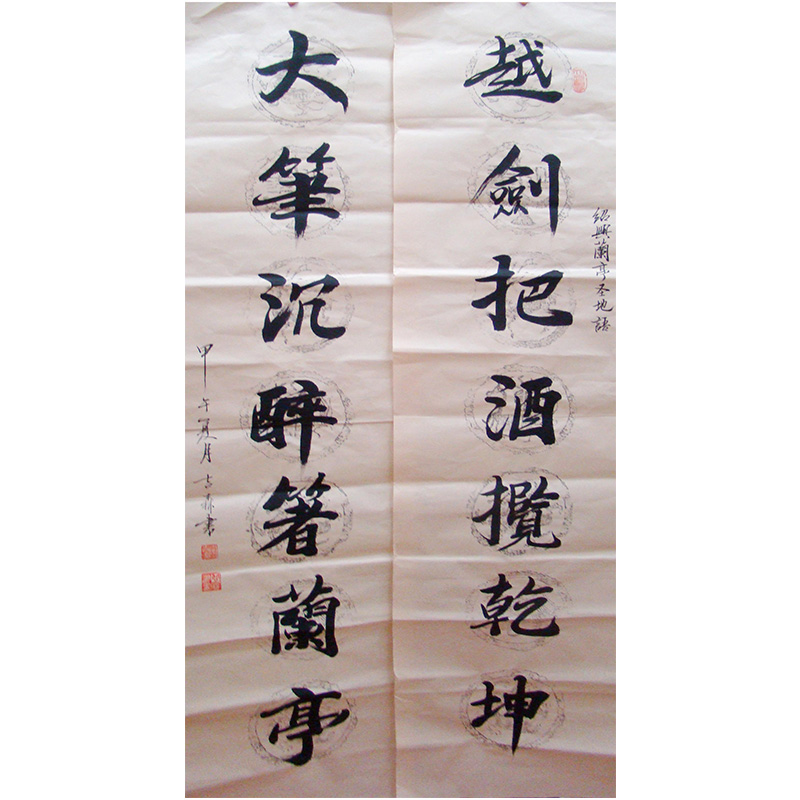 越劍把酒攬乾坤
紹興蘭亭圣地語
大筆沉醉箸蘭亭
甲午夏月 書